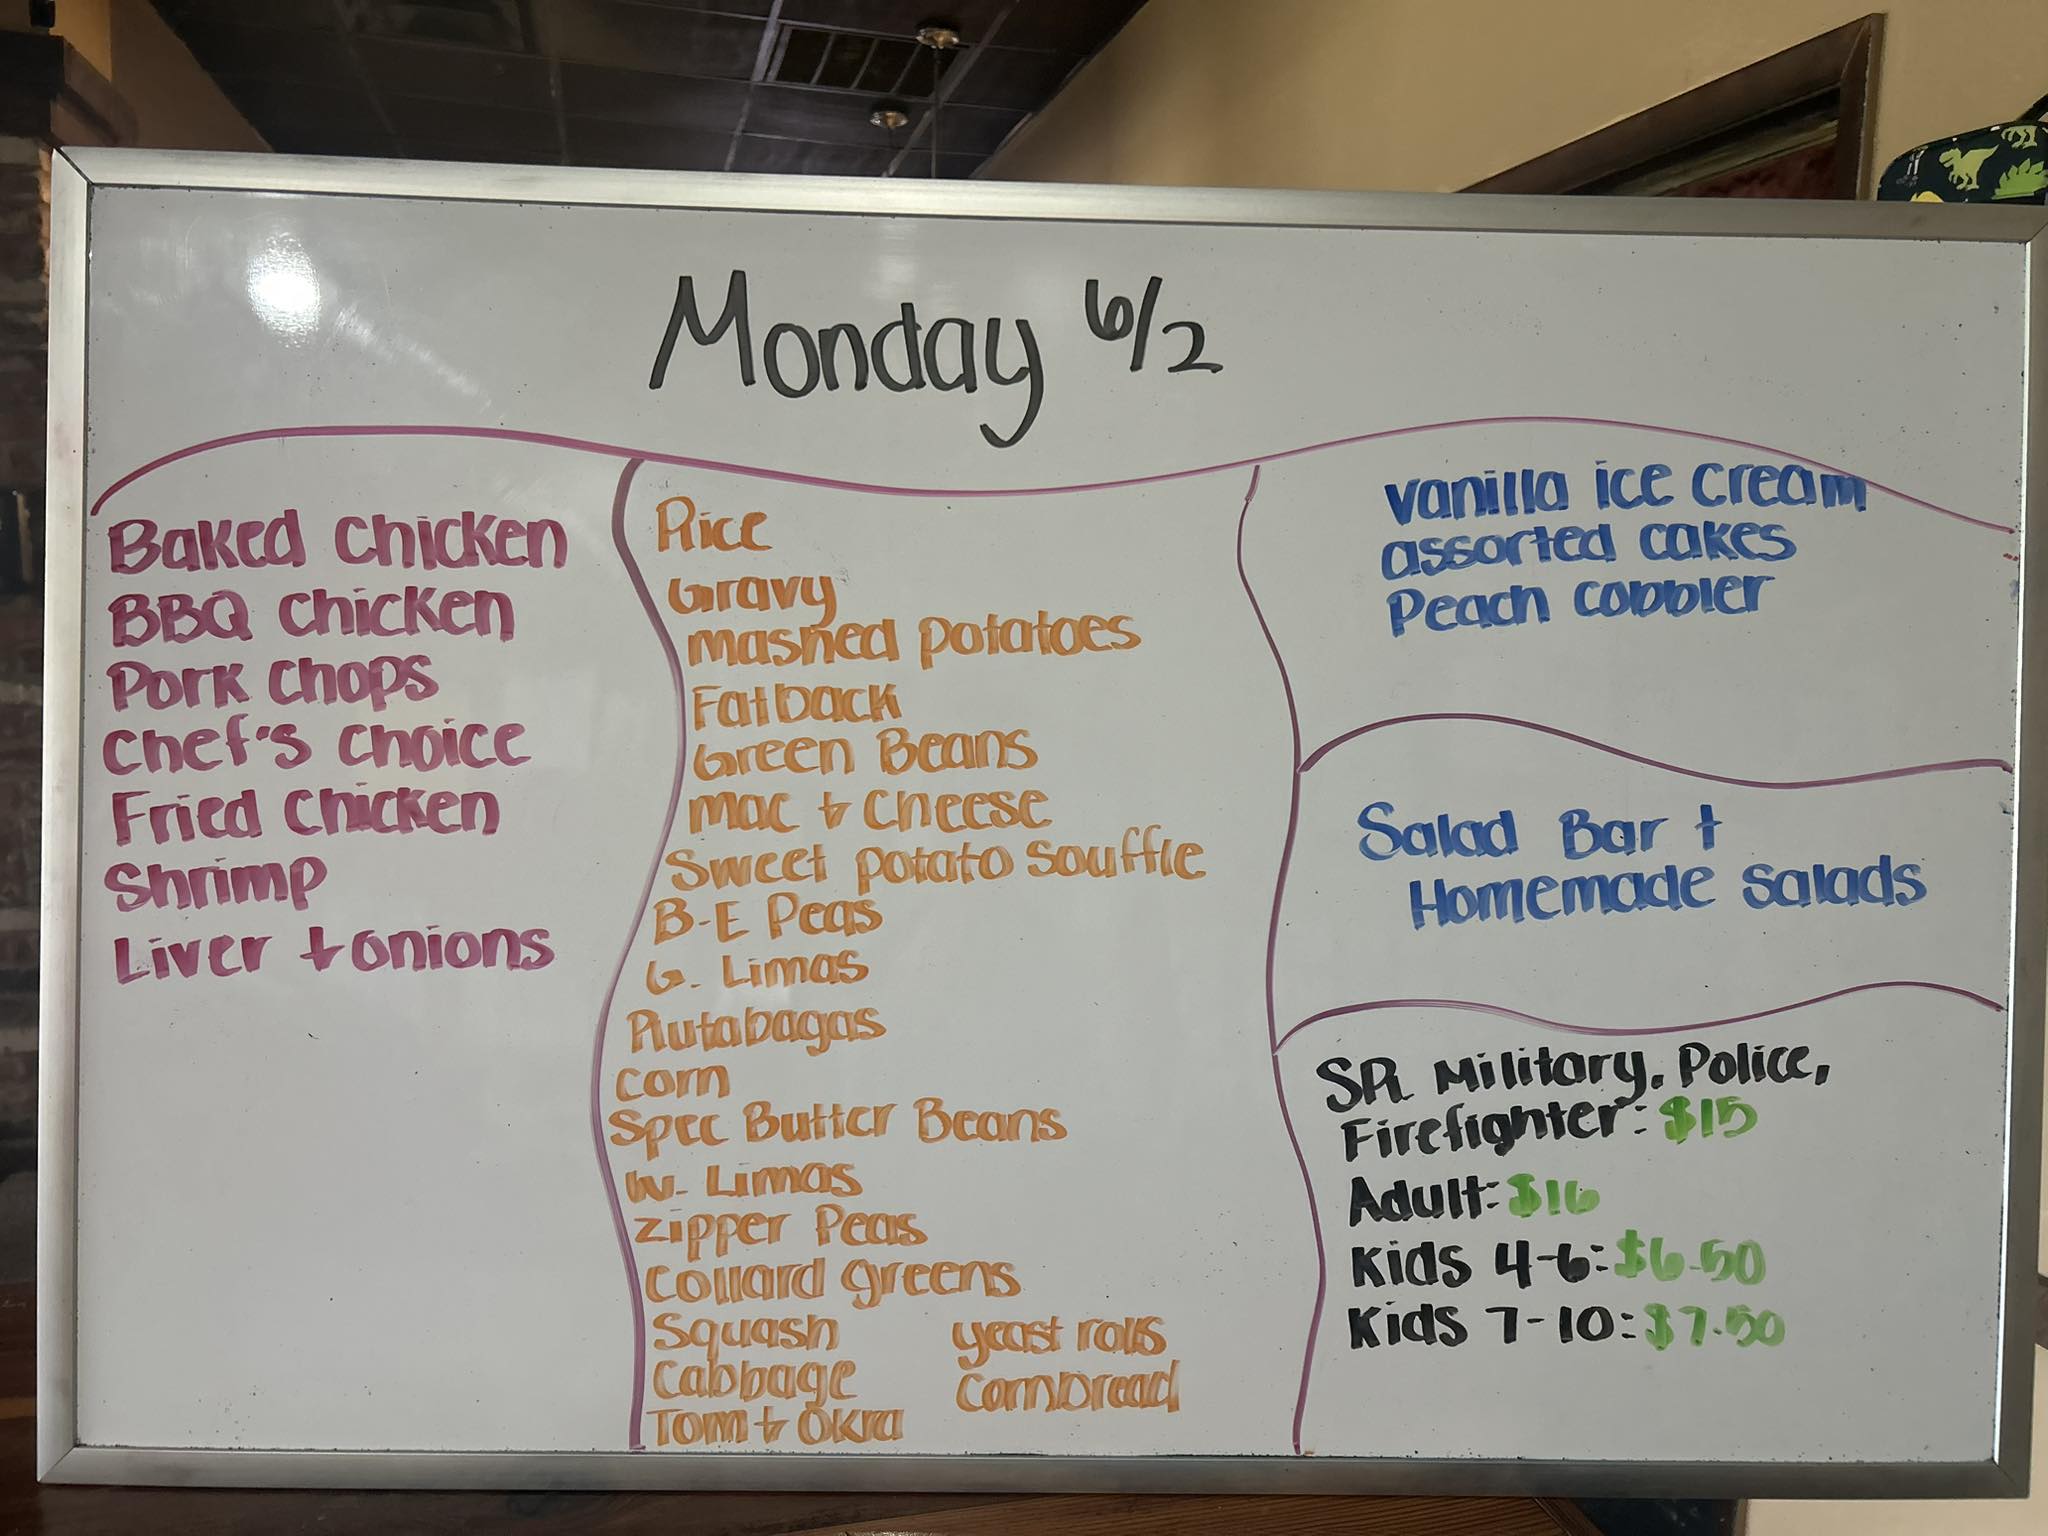 Monday 6/2
Baked Chicken
BBQ Chicken
Pork Chops
Chef's Choice
Fried Chicken
Shrimp
Liver + onions
Rice
Gravy
Mashed Potatoes
Fatback
Green Beans
Mac + Cheese
Sweet Potato Souffle
B-E Peas
G. Limas
Rutabagas
Corn
Spec Butter Beans
W. Limas
Zipper Peas
Collard greens
Squash
Cabbage
Tom + Okra
yeast rolls
Cornbread
Vanilla ice cream
assorted cakes
Peach cobbler
Salad Bar +
Homemade Salads
SR. Military, Police,
Firefighter: $15
Adult: $16
Kids 4-6: $6.50
Kids 7-10: $7.50